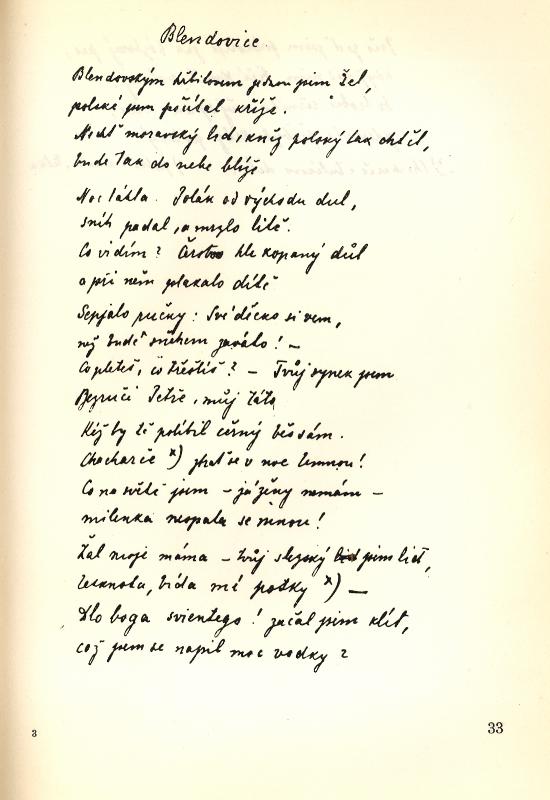 Blendovice.
Blendovským hřbitovem jednou jsem šel,
polské jsem počítal kříže.
Nechť moravský lid, kněz polský tak chtěl,
bude tak do nebe blíže
Noc táhla. Polák od východu dul,
sníh padal, a mrzlo litě.
Co vidím? Čerstvo hle kopaný důl
a při něm plakalo dítě
Sepjalo ručky: Své děcko si vem,
než bude sněhem zaváto! –
Co pleteš, co třeštíš? – Tvůj synek jsem
Bezruči Petře, můj táto
Kéž by tě políbil černý běs sám.
Chacharče x) ztrať se v noc temnou!
Co na světě jsem – já ženy nemám –
milenka nespala se mnou!
Žal moje máma – tvůj slezský jsem lid,
temnota, bída mé potky x) –
Dlo boga svientego! začal jsem klít,
což jsem se napil moc vodky?
3
33